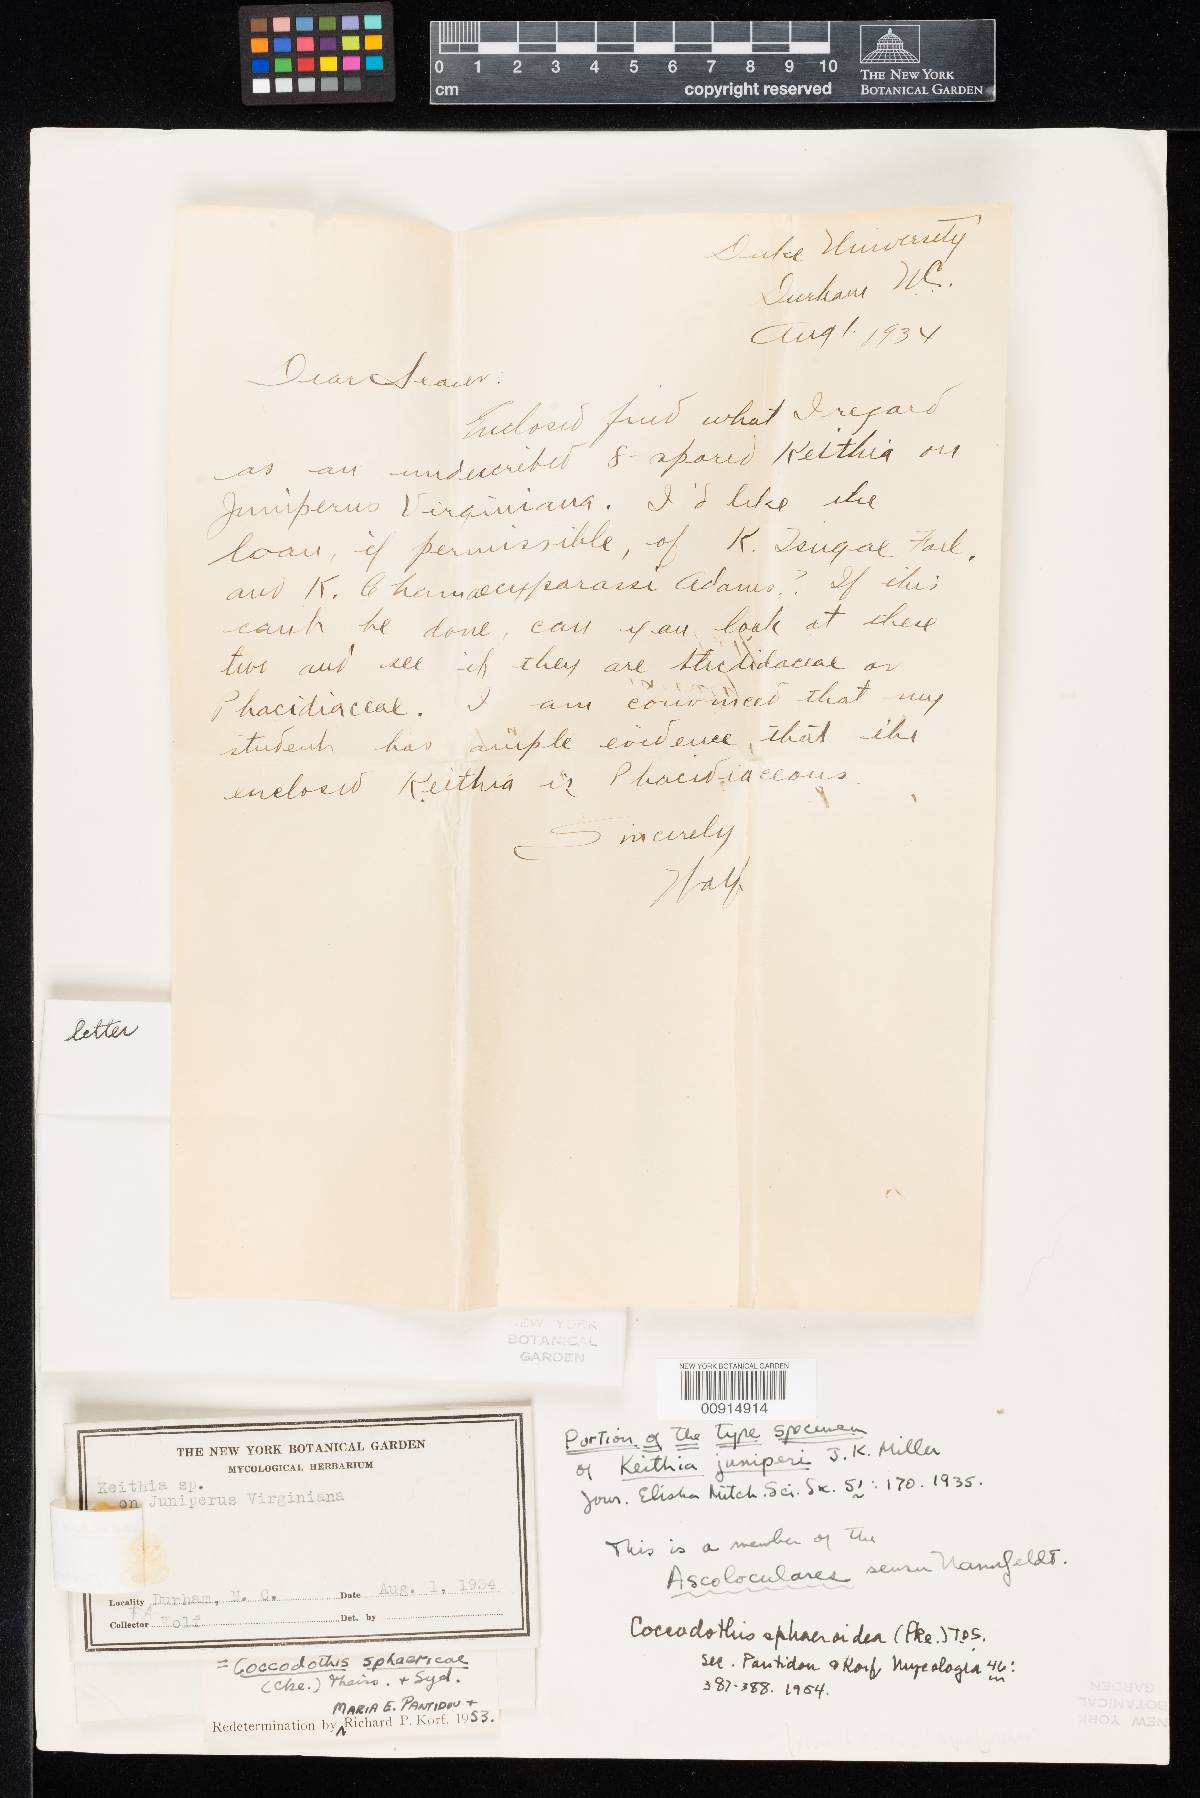 0 1 2 3 4 5 6 7 8 9 10
cm
copyright reserved
THE NEW YORK
BOTANICAL GARDEN
Duke University
Durham N.C.
Aug 1. 1934
Dear Seaver:
Enclosed find what I regard
as an undescribed 8-spored Keithia on
Juniperus Virginiana. I'd like the
loan, if permissible, of K. Tsugae Farl.
and K. Chamaecyparissi Adams? If this
can't be done, can you look at these
two and see if they are Stictidaceae or
Phacidiaceae. I am convinced that my
student has ample evidence, that the
enclosed Keithia is Phacidiaceous.
Sincerely
Wolf
letter
NEW YORK
BOTANICAL
GARDEN
NEW YORK BOTANICAL GARDEN
00914914
Portion of the type specimen
of Keithia juniperi J. K. Miller
Jour. Elisha Mitch. Sci. Soc. 51: 170. 1935.
This is a member of the
Ascoloculares sensu Nannfeldt.
Coccodothis sphaeroidea (Pke.) T & S.
See. Pantidou & Korf, Mycologia 46:
387-388. 1954.
THE NEW YORK BOTANICAL GARDEN
MYCOLOGICAL HERBARIUM
Keithia sp.
on Juniperus Virginiana
Locality Durham, N. C. Date Aug. 1, 1934
Collector F A Wolf Det. by
= Coccodothis sphaericae
(Cke.) Theiss. + Syd.
MARIA E. PANTIDOU +
Redetermination by Richard P. Korf, 1953.
NEW YORK
BOTANICAL
GARDEN